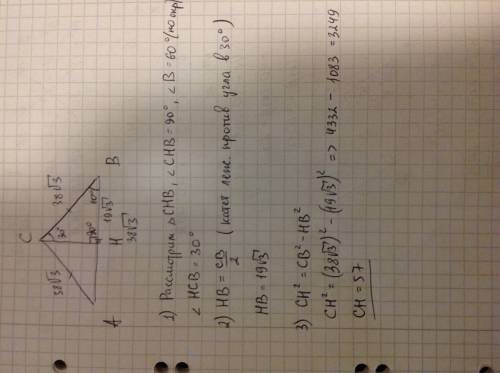 C
38√3
38√3
30°
90°
60°
19√3
A
H
B
38√3
1) Рассмотрим △CHB, ∠CHB = 90°, ∠B = 60°
∠HCB = 30°
2) HB = CB/2 (катет леж. против угла в 30°)
HB = 19√3
3) CH² = CB² - HB²
CH² = (38√3)² - (19√3)² => 4332 - 1083 = 3249
CH = 57